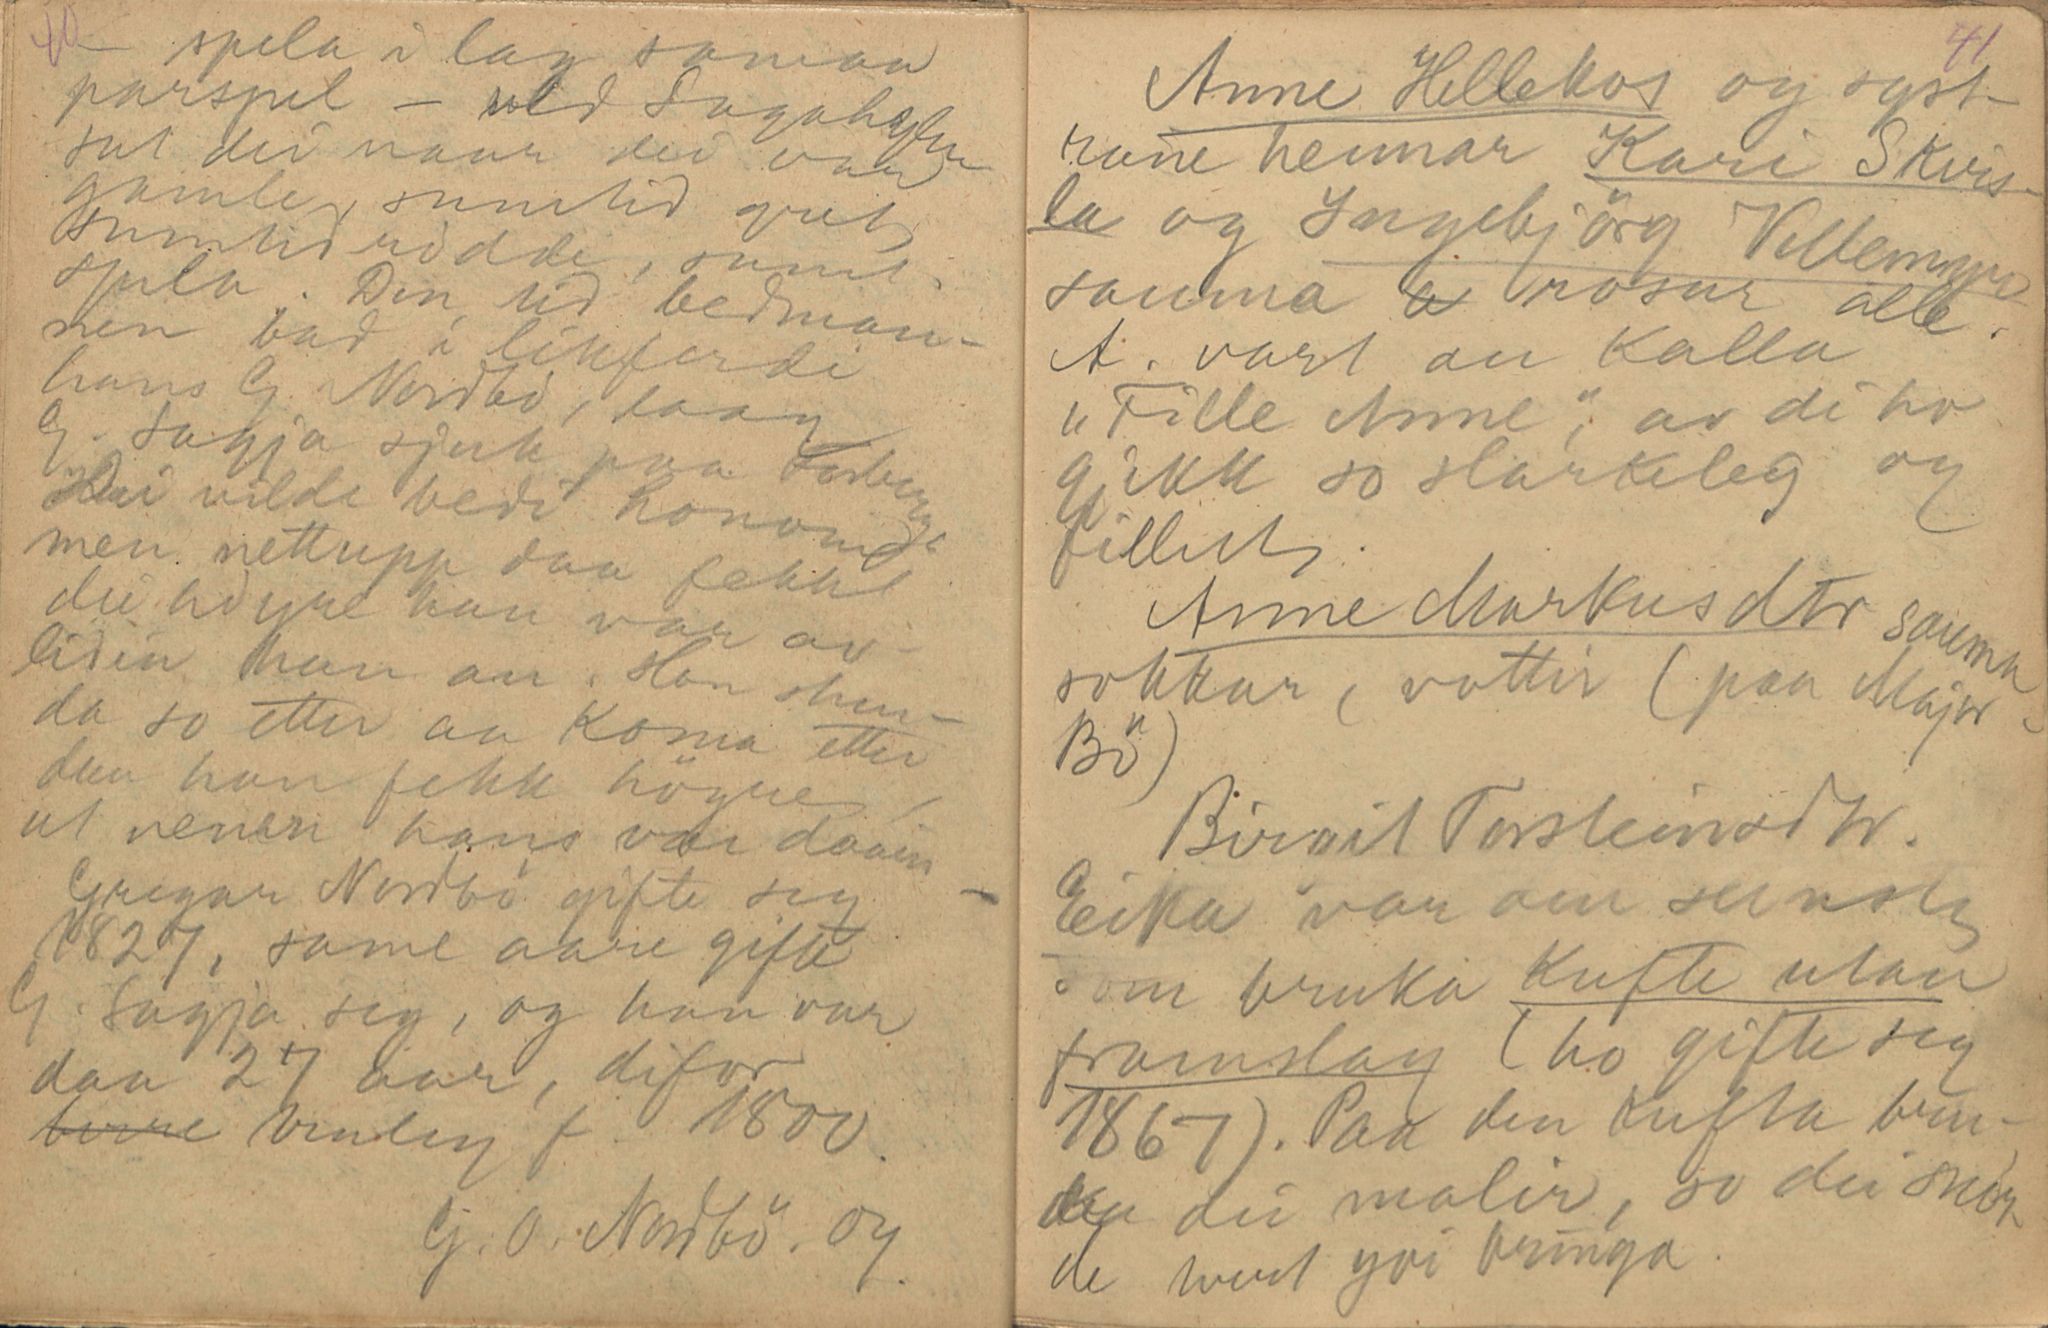 40
- spela i lag saman
parspel - ved Sagahylen
sat dei naar dei var
gamle, sumtid gret,
sumtid rödde, sumt.
spela. Den tid bedman-
nen bad i likferdi
hans G. Nordbö, laag
G. Sagja sjuk paa
Dei vilde bedi honom
men nettupp daa fekk
dei höyre han var av-
lidin han au. Han stun-
da so etter aa koma etter
daa han fekk höyre,
at venen hans var daain -
Gregar Nordbö gifte seg
1827, same aare gifte
G. Sagja seg, og han var
daa 27 aar, difor
venleg f. 1800.
G. O. Nordbö. og
41
Anne Hellekos og syst-
rane hennar Kari Skris-
la og Ingebjörg Villemyr
sauma rosur alle.
A. vart au kalla
"Fille Anne", av di ho
gjekk so slarkeleg og
fillut.
Anne Markusdtr sauma
sokkar, vottir (paa Major-
Bö)
Birgit Torsteinsdtr.
Eika var den seinste
som bruka kufte utan
framslag (ho gifte seg
1867). Paa den kufta bru-
ka dei malir, so dei snör-
de tvert yvi bringa.